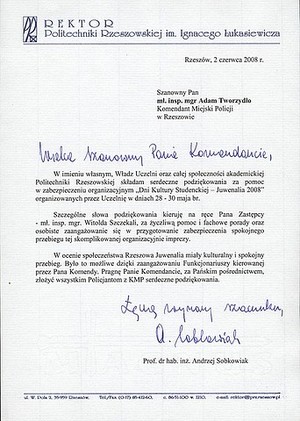 REKTOR
Politechniki Rzeszowskiej im. Ignacego Łukasiewicza
Rzeszów, 2 czerwca 2008 r.
Szanowny Pan
mł. insp. mgr Adam Tworzydło
Komendant Miejski Policji
w Rzeszowie
Wielce Szanowny Panie Komendancie,
W imieniu własnym, Władz Uczelni oraz całej społeczności akademickiej
Politechniki Rzeszowskiej składam serdeczne podziękowania za pomoc
w zabezpieczeniu organizacyjnym „Dni Kultury Studenckiej – Juwenalia 2008”
organizowanych przez Uczelnię w dniach 28 - 30 maja br.
Szczególne słowa podziękowania kieruję na ręce Pana Zastępcy
- mł. insp. mgr. Witolda Szczekali, za życzliwą pomoc i fachowe porady oraz
osobiste zaangażowanie się w przygotowanie zabezpieczenia spokojnego
przebiegu tej skomplikowanej organizacyjnie imprezy.
W ocenie społeczeństwa Rzeszowa Juwenalia miały kulturalny i spokojny
przebieg. Było to możliwe dzięki zaangażowaniu Funkcjonariuszy kierowanej
przez Pana Komendy. Pragnę Panie Komendancie, za Pańskim pośrednictwem,
złożyć wszystkim Policjantom z KMP serdeczne podziękowania.
Łączę wyrazy szacunku
A. Sobkowiak
Prof. dr hab. inż. Andrzej Sobkowiak
ul. W. Pola 2, 35-959 Rzeszów,